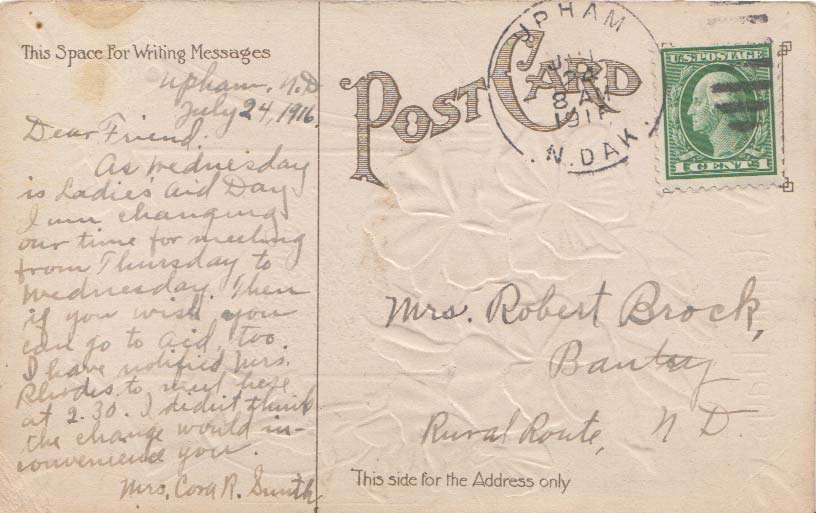 This Space For Writing Messages
Upham, N.D
July 24, 1916.
Dear Friend.
As Wednesday
is Ladies Aid Day
I am changing
our time for meeting
from Thursday to
Wednesday. Then
if you wish you
can go to Aid, too.
I have notified Mrs.
Rhodes to meet here
at 2.30. I didn't think
the change would in-
convenience you.
Mrs. Cora R. Smith
POST CARD
UPHAM
24
8 AM
191
N. DAK.
U.S. POSTAGE
1 CENT 1
Mrs. Robert Brock,
Bantry
Rural Route, N D.
This side for the Address only